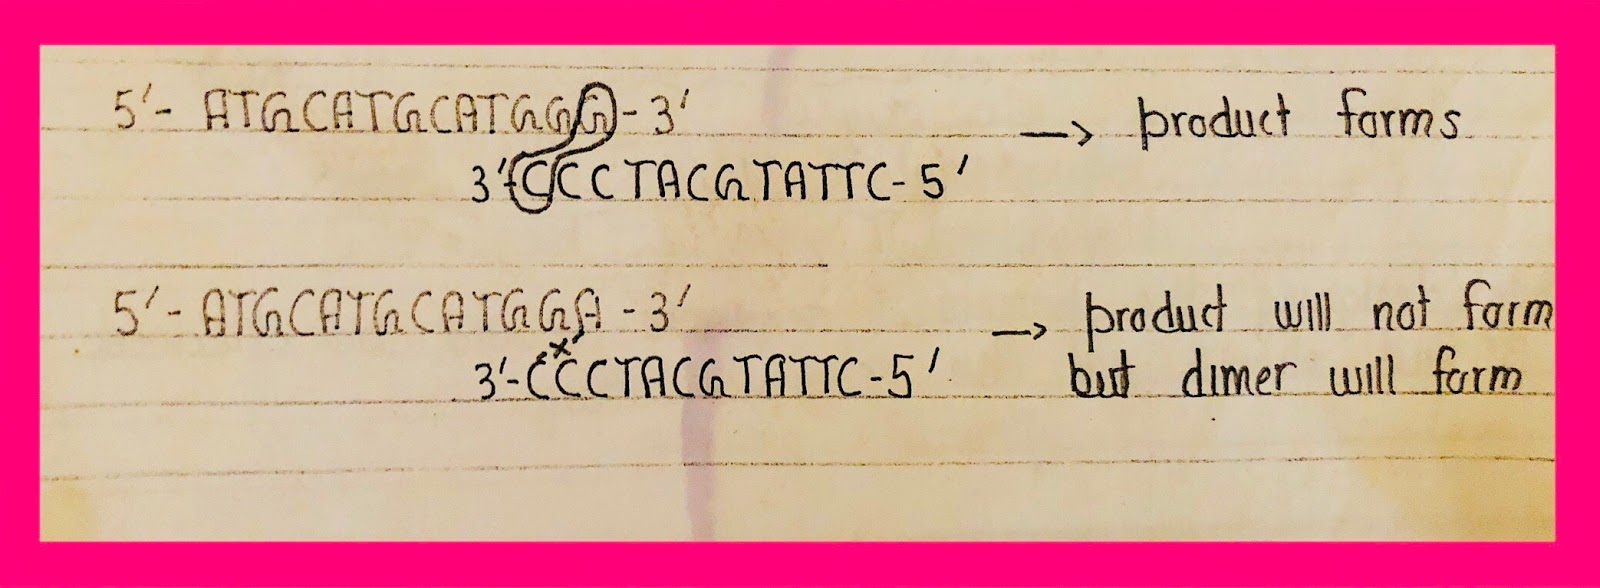 5'- ATGCATGCATGGG-3' → product forms
3'-CCCTACGTATTC-5'
5'-ATGCATGCATGGA-3' → product will not form
x
3'-CCCTACGTATTC-5' but dimer will form